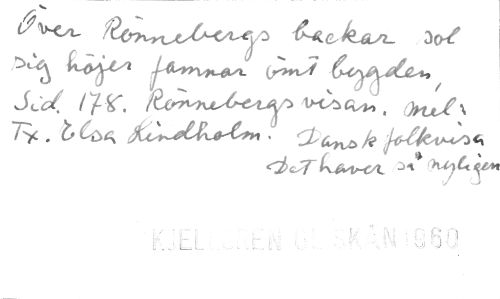 Över Rönnebergs backar sol
sig höjer famnar ömt bygden,
Sid. 178. Rönnebergsvisan. mel:
Tx. Elsa Lindholm. Dansk folkvisa
Det haver så nyligen
KJELLGREN SKÅN 1960